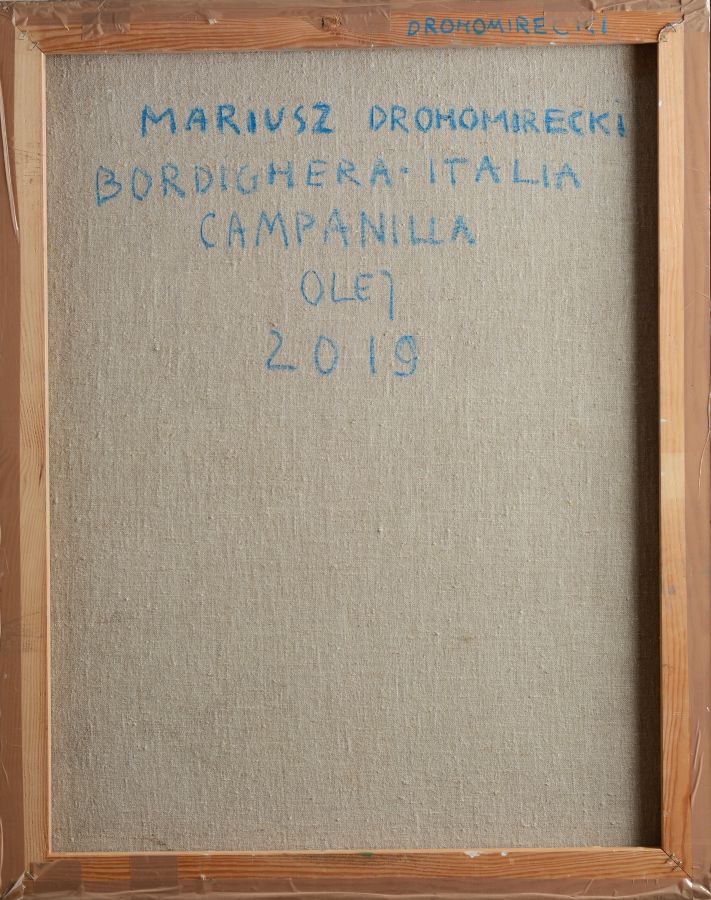 DROHOMIRECKI
MARIUSZ DROHOMIRECKI
BORDIGHERA · ITALIA
CAMPANILLA
OLEJ
2019